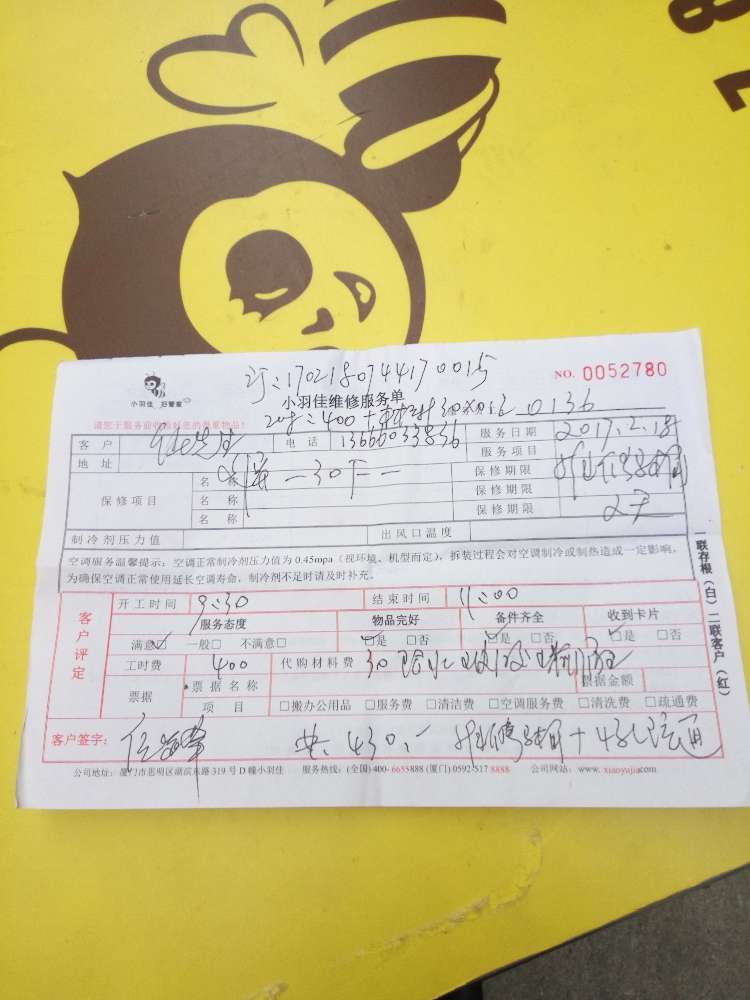 小羽佳 妇警家
小羽佳维修服务单
NO. 0052780
请您于服务前收捡好您的贵重物品!
0136
客 户 电 话 13666033836 服务日期 2017.2.18
地 址 服务项目
保修项目 名 称 保修期限
名 称 保修期限
名 称 保修期限
制冷剂压力值 出风口温度
空调服务温馨提示:空调正常制冷剂压力值为 0.45mpa(视环境、机型而定),拆装过程会对空调制冷或制热造成一定影响,
为确保空调正常使用延长空调寿命,制冷剂不足时请及时补充。
一联存根(白)二联客户(红)
客户评定
开工时间 9:30 结束时间 11:00
服务态度 物品完好 备件齐全 收到卡片
满意☑ 一般□ 不满意□ ☑是 □否 ☑是 □否 ☑是 □否
工时费 400 代购材料费 30
票据 票据名称 票据金额
项 目 □搬办公用品 □服务费 □清洁费 □空调服务费 □清洗费 □疏通费
客户签字: 共:430.-
公司地址:厦门市思明区湖滨东路 319 号 D 幢小羽佳 服务热线:(全国)400-6655888 (厦门)0592-517 8888 公司网站:www. xiaoyujia.com